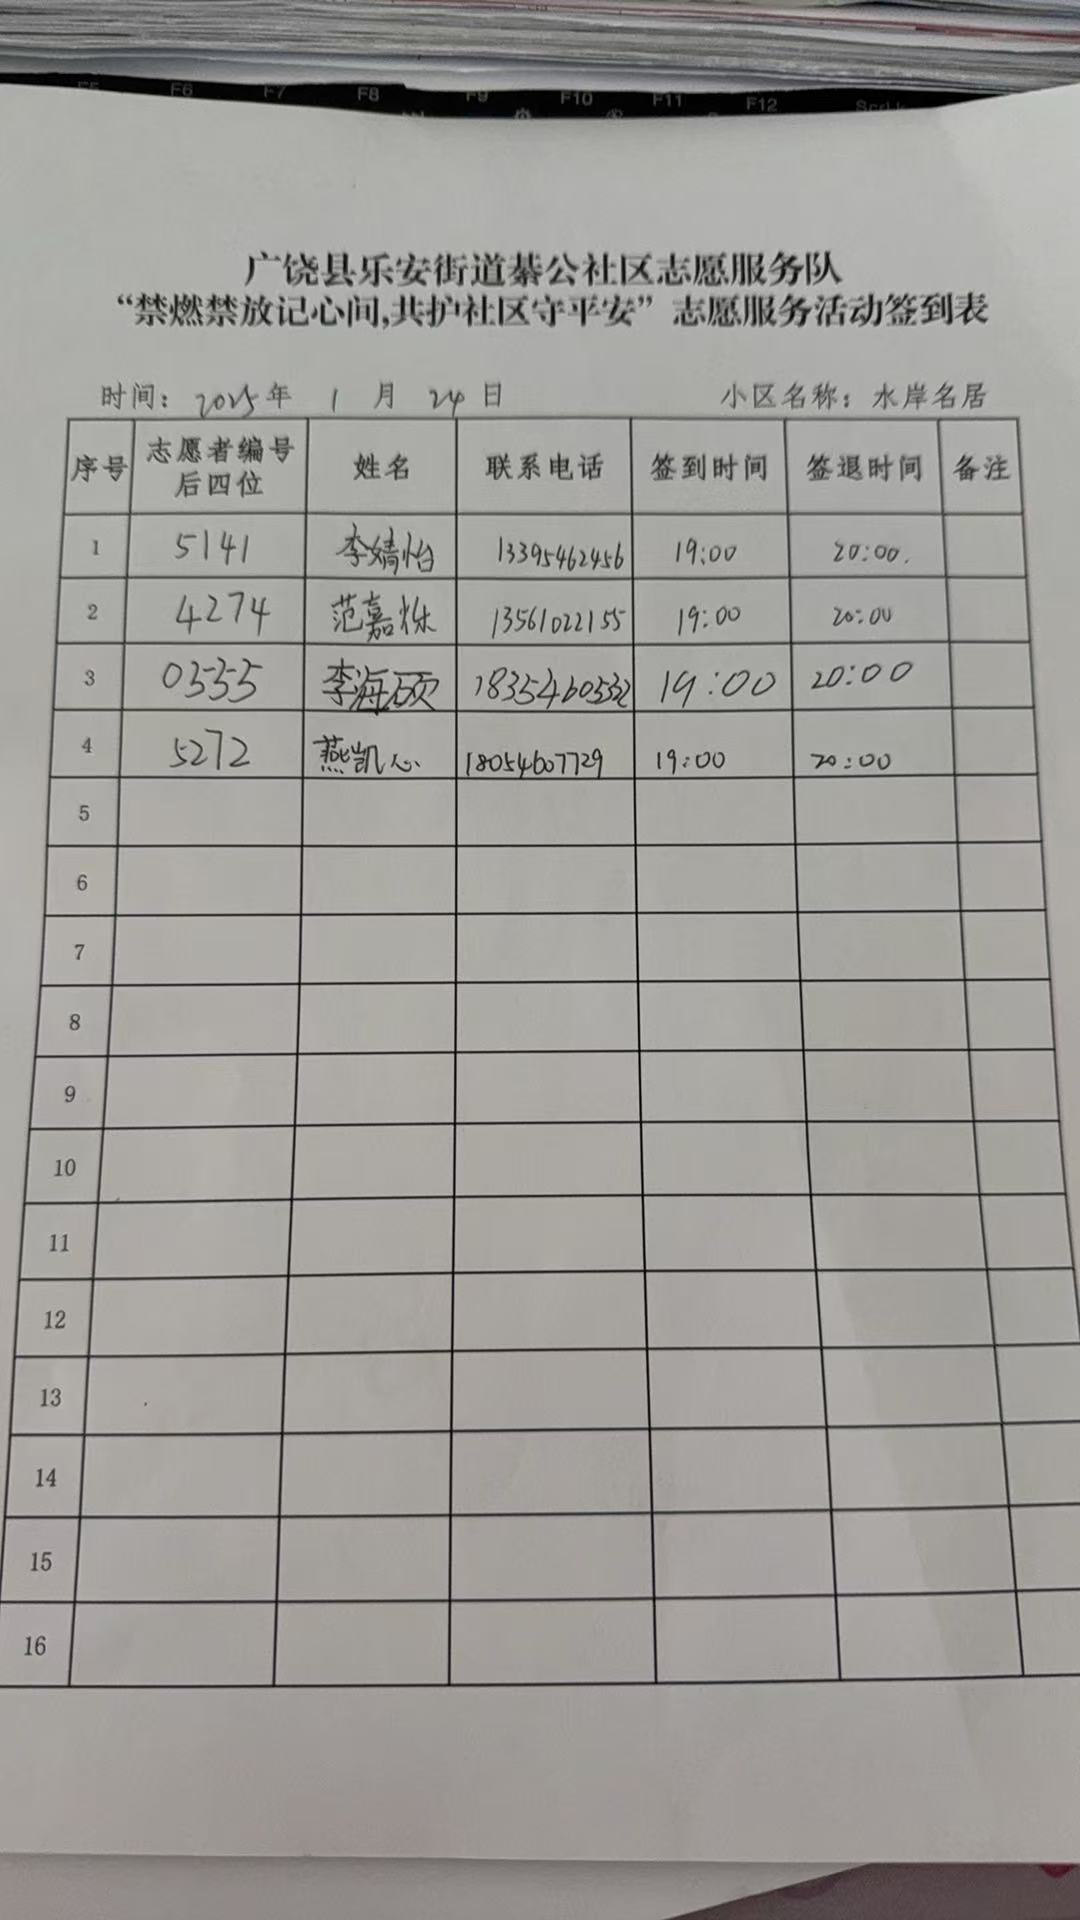 F5 F6 F7 F8 F9 F10 F11 F12 ScrLk
广饶县乐安街道綦公社区志愿服务队
“禁燃禁放记心间,共护社区守平安”志愿服务活动签到表
时间：2025年 1 月 24 日 小区名称：水岸名居
序号 志愿者编号后四位 姓名 联系电话 签到时间 签退时间 备注
1 5141 李婧怡 13395462456 19:00 20:00.
2 4274 范嘉烁 13561022155 19:00 20:00
3 0535 李海硕 18354605332 19:00 20:00
4 5272 燕凯心 18054607729 19:00 20:00
5
6
7
8
9
10
11
12
13
14
15
16